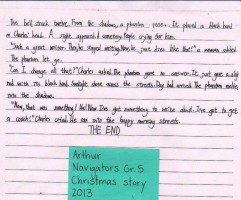 The bell struck twelve. From the shadows, a phantom rose. It placed a black hand
on Charles' head. A sight appeared. A cemetery. People crying for him.
"Such a great writer. They stopped writing. Now he just dies like that!" a woman
The phantom let go.
"Can I change all that?" Charles asked. The phantom gave no answer. It just gave a
nod with its black hand. Sunlight shone across the streets. Day had arrived. The phantom
into the shadows.
"Now, that was something! Ha! Now I've got something to write about. I've got to get
a coach!" Charles cried. He ran into the happy morning streets.
THE END
Arthur
Navigators Gr.5
Christmas story
2013